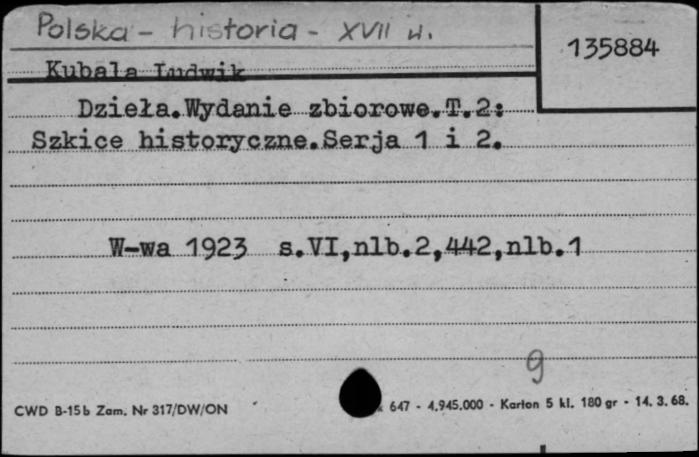 Polska - historia - XVII w.
135884
Kubala Ludwik
Dzieła.Wydanie zbiorowe.T.2:
Szkice historyczne.Serja 1 i 2.
W-wa 1923 s.VI,nlb.2,442,nlb.1
9
CWD B-15b Zam. Nr 317/DW/ON
647 - 4.945.000 - Karton 5 kl. 180 gr - 14. 3. 68.